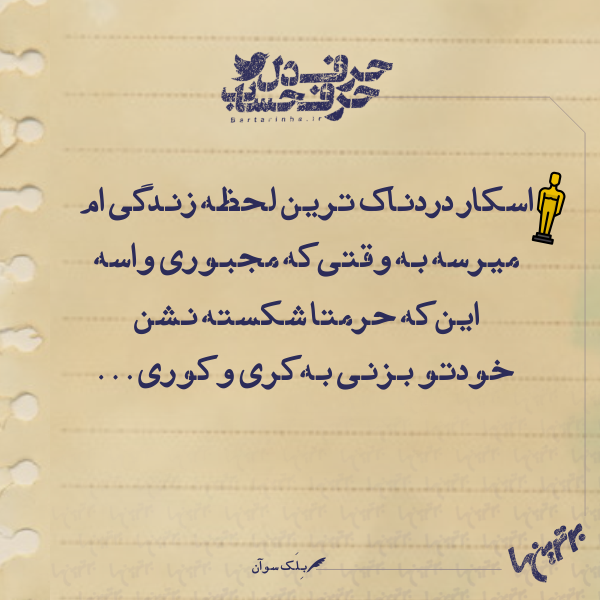 حرف دل
حرف حساب
Bartarinha.ir
اسکار دردناک ترین لحظه زندگی ام
میرسه به وقتی که مجبوری واسه
این که حرمتا شکسته نشن
خودتو بزنی به کری و کوری...
بلک سوآن
برترین ها